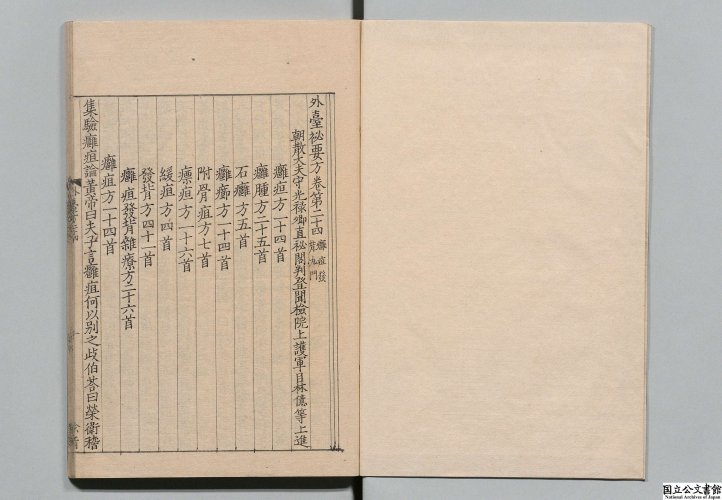 外臺祕要方卷第二十四 癰疽發背九門
朝散大夫守光祿卿直祕閣判登聞檢院上護軍臣林億等上進
癰疽方一十四首
癰腫方二十五首
石癰方五首
癰癤方一十四首
附骨疽方七首
瘭疽方一十六首
緩疽方四首
發背方四十一首
癰疽發背雜療方二十六首
癰疽方一十四首
集驗癰疽論黃帝曰夫子言癰疽何以別之歧伯荅曰榮衛稽
国立公文書館
National Archives of Japan